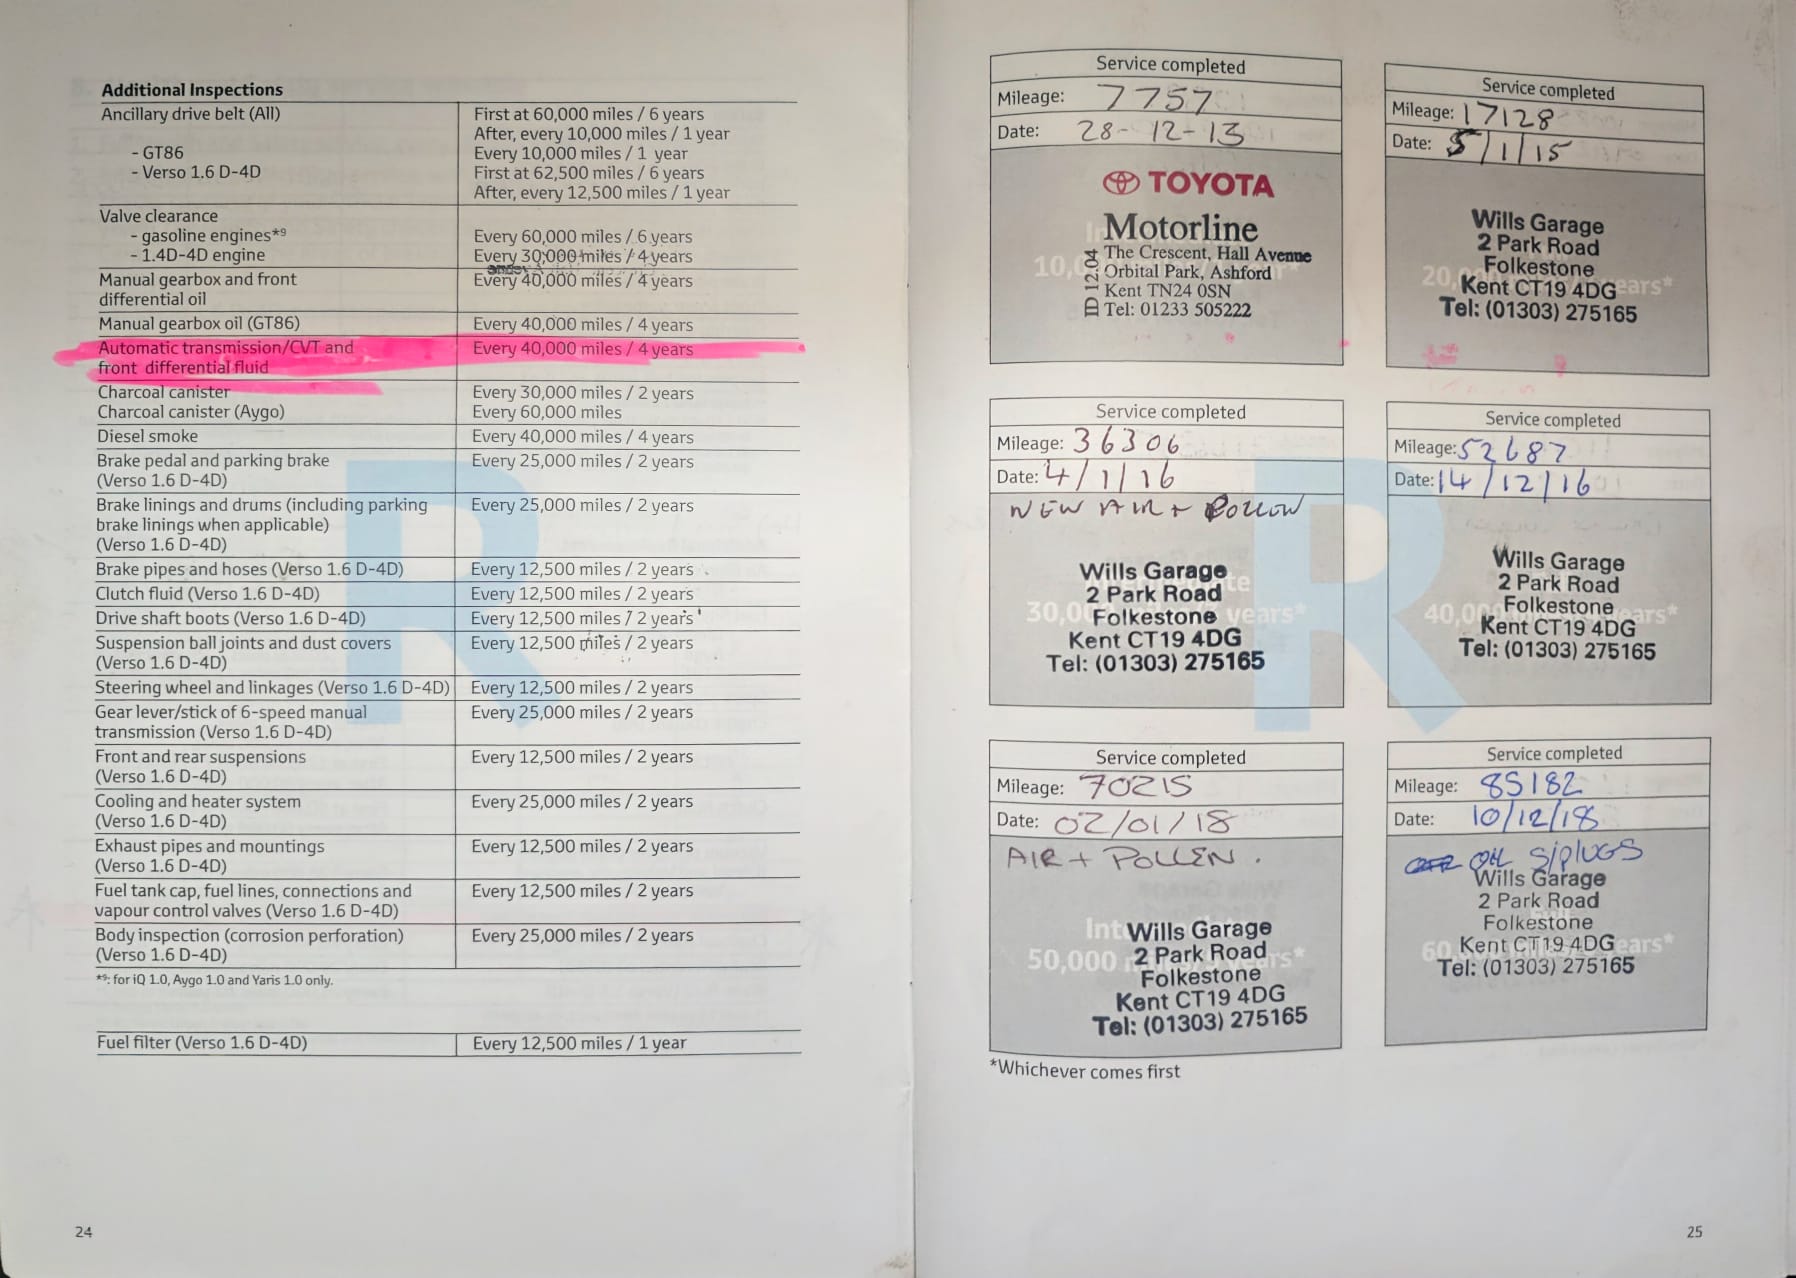 Additional Inspections
Ancillary drive belt (All) First at 60,000 miles / 6 years
After, every 10,000 miles / 1 year
- GT86 Every 10,000 miles / 1 year
- Verso 1.6 D-4D First at 62,500 miles / 6 years
After, every 12,500 miles / 1 year
Valve clearance
- gasoline engines*9 Every 60,000 miles / 6 years
- 1.4D-4D engine Every 30,000 miles / 4 years
Manual gearbox and front Every 40,000 miles / 4 years
differential oil
Manual gearbox oil (GT86) Every 40,000 miles / 4 years
Automatic transmission/CVT and Every 40,000 miles / 4 years
front differential fluid
Charcoal canister Every 30,000 miles / 2 years
Charcoal canister (Aygo) Every 60,000 miles
Diesel smoke Every 40,000 miles / 4 years
Brake pedal and parking brake Every 25,000 miles / 2 years
(Verso 1.6 D-4D)
Brake linings and drums (including parking Every 25,000 miles / 2 years
brake linings when applicable)
(Verso 1.6 D-4D)
Brake pipes and hoses (Verso 1.6 D-4D) Every 12,500 miles / 2 years
Clutch fluid (Verso 1.6 D-4D) Every 12,500 miles / 2 years
Drive shaft boots (Verso 1.6 D-4D) Every 12,500 miles / 2 years
Suspension ball joints and dust covers Every 12,500 miles / 2 years
(Verso 1.6 D-4D)
Steering wheel and linkages (Verso 1.6 D-4D) Every 12,500 miles / 2 years
Gear lever/stick of 6-speed manual Every 25,000 miles / 2 years
transmission (Verso 1.6 D-4D)
Front and rear suspensions Every 12,500 miles / 2 years
(Verso 1.6 D-4D)
Cooling and heater system Every 25,000 miles / 2 years
(Verso 1.6 D-4D)
Exhaust pipes and mountings Every 12,500 miles / 2 years
(Verso 1.6 D-4D)
Fuel tank cap, fuel lines, connections and Every 12,500 miles / 2 years
vapour control valves (Verso 1.6 D-4D)
Body inspection (corrosion perforation) Every 25,000 miles / 2 years
(Verso 1.6 D-4D)
*9: for iQ 1.0, Aygo 1.0 and Yaris 1.0 only.
Fuel filter (Verso 1.6 D-4D) Every 12,500 miles / 1 year
R
24
Service completed
Mileage: 7757
Date: 28-12-13
TOYOTA
Motorline
The Crescent, Hall Avenue
Orbital Park, Ashford
Kent TN24 0SN
Tel: 01233 505222
ID 12.04
Service completed
Mileage: 17128
Date: 5/1/15
Wills Garage
2 Park Road
Folkestone
Kent CT19 4DG
Tel: (01303) 275165
Service completed
Mileage: 36306
Date: 4/1/16
NEW AIR +
Wills Garage
2 Park Road
Folkestone
30,000 years*
Kent CT19 4DG
Tel: (01303) 275165
Service completed
Mileage: 52687
Date: 14/12/16
Wills Garage
2 Park Road
Folkestone
Kent CT19 4DG
Tel: (01303) 275165
Service completed
Mileage: 70215
Date: 02/01/18
AIR + POLLEN.
Wills Garage
2 Park Road
50,000
Folkestone
Kent CT19 4DG
Tel: (01303) 275165
Service completed
Mileage: 85182
Date: 10/12/18
OIL S/PLUGS
Wills Garage
2 Park Road
Folkestone
Kent CT19 4DG
Tel: (01303) 275165
R
*Whichever comes first
25